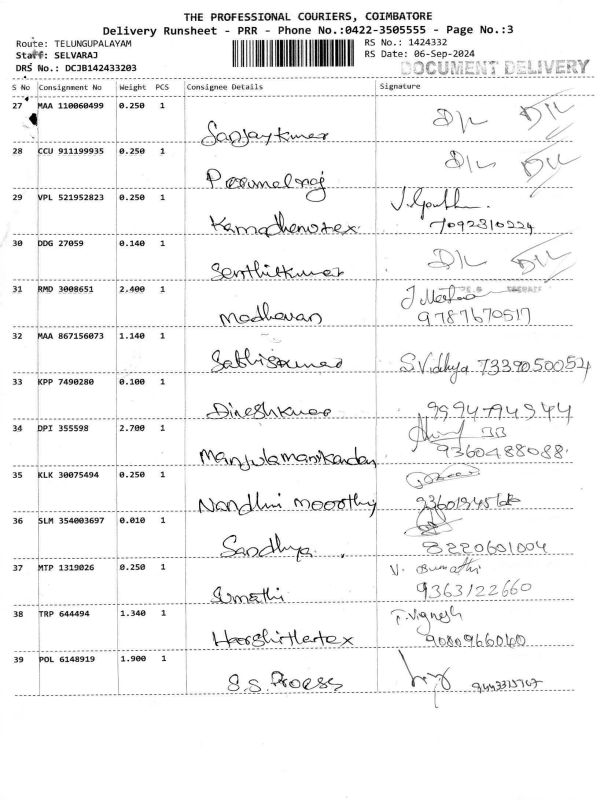 THE PROFESSIONAL COURIERS, COIMBATORE
Delivery Runsheet - PRR - Phone No.:0422-3505555 - Page No.:3
Route: TELUNGUPALAYAM
RS No.: 1424332
Staff: SELVARAJ
RS Date: 06-Sep-2024
DRS No.: DCJB142433203
DOCUMENT DELIVERY
S No Consignment No Weight PCS Consignee Details Signature
27 MAA 110060499 0.250 1
Sanjaykumar D/L D/L
28 CCU 911199935 0.250 1
Perumalraj D/L D/L
29 VPL 521952823 0.250 1
Kamadhenutex 7092310224
30 DDG 27059 0.140 1
Senthilkumar D/L D/L
31 RMD 3008651 2.400 1
Madhavan 9787670517
32 MAA 867156073 1.140 1
Sathiskumar S.Vidhya 7339050054
33 KPP 7490280 0.100 1
Dineshkumar
34 DPI 355598 2.700 1
Manjulamanikandan 9360488088
35 KLK 30075494 0.250 1
Nandhini Moorthy
36 SLM 354003697 0.010 1
Sandhya 8220601004
37 MTP 1319026 0.250 1
V. Sumathi
Sumathi 9363122660
38 TRP 644494 1.340 1
T. Vignesh
Harshithertex
39 POL 6148919 1.900 1
S.S. Process